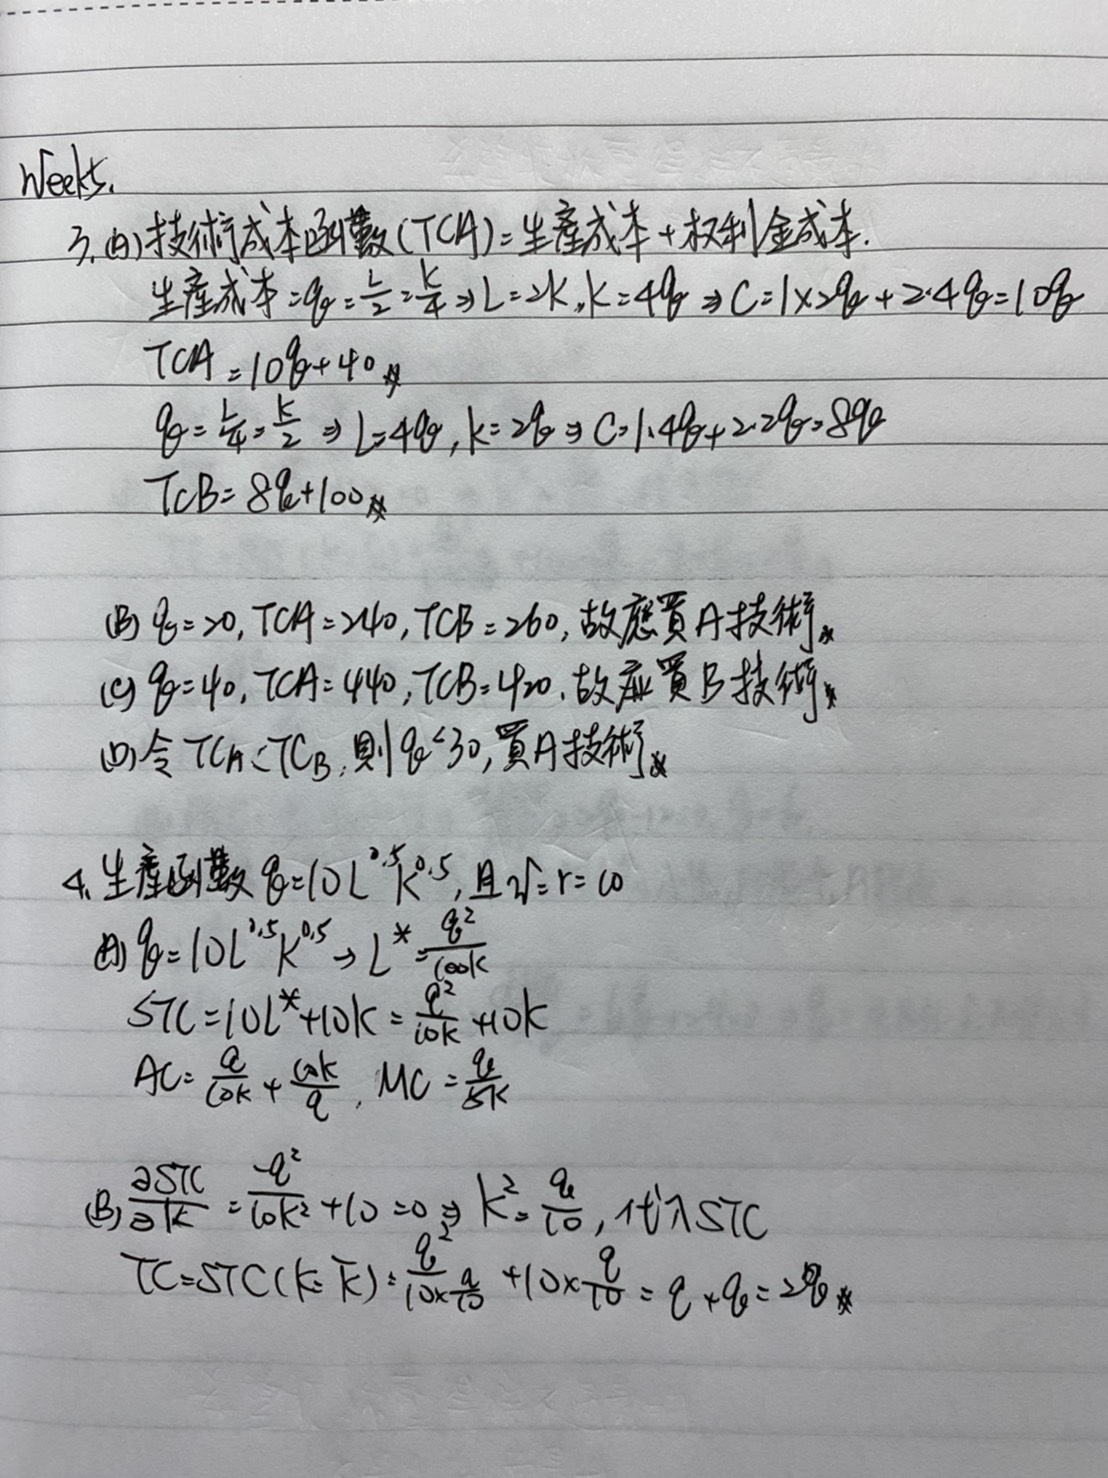 Week5.
3.(A)技術成本函數(TCA)=生產成本+权利金成本.
生產成本=q=L/2=K/4⇒L=2K,K=4q⇒C=1×2q+2·4q=10q
TCA=10q+40
q=L/4=K/2⇒L=4q,k=2q⇒C=1·4q+2·2q=8q
TCB=8q+100
(B) q=20,TCA=240,TCB=260,故應買A技術
(C) q=40,TCA=440,TCB=420,故應買B技術
(D)令TCA<TCB,則q<30,買A技術
4.生產函數q=10L^0.5K^0.5,且w=r=10
(A) q=10L^0.5K^0.5→L*=q²/100K
STC=10L*+10K=q²/10K+10K
AC=q/10K+10K/q, MC=q/5K
(B) ∂STC/∂K=-q²/10K²+10=0⇒K²=q/10,代入STC
TC=STC(K=K̄)=q²/(10×q/10)+10×q/10=q+q=2q